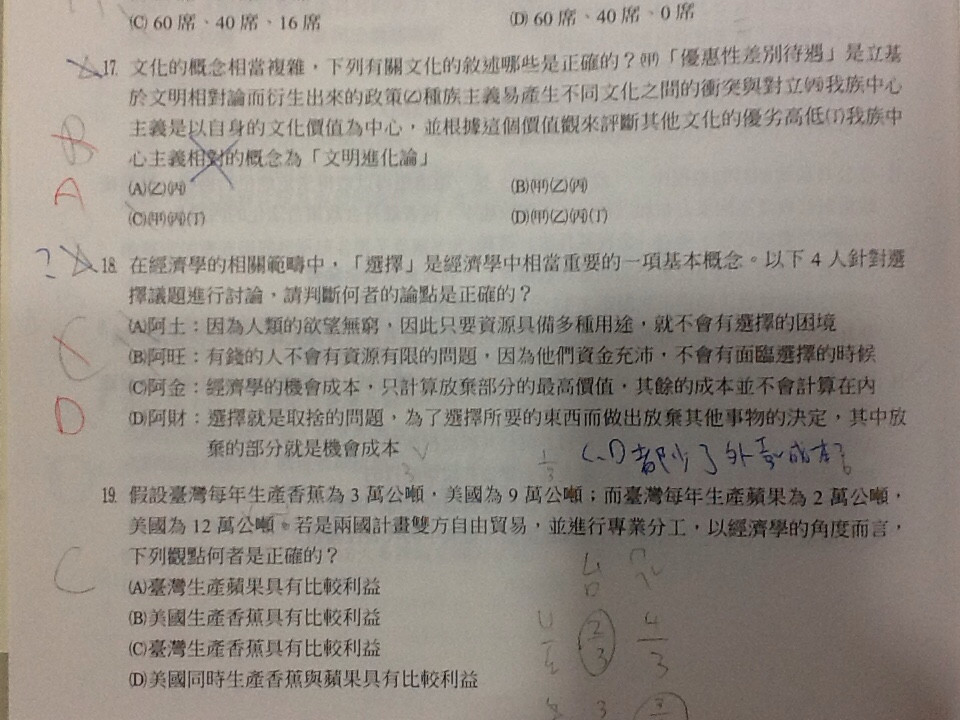 (C) 60 席、40 席、16 席
(D) 60 席、40 席、0 席
17. 文化的概念相當複雜，下列有關文化的敘述哪些是正確的？㈙「優惠性差別待遇」是立基
於文明相對論而衍生出來的政策㈚種族主義易產生不同文化之間的衝突與對立㈛我族中心
主義是以自身的文化價值為中心，並根據這個價值觀來評斷其他文化的優劣高低(丁)我族中
心主義相對的概念為「文明進化論」
B
A
(A)(乙)(丙)
(B)(甲)(乙)(丙)
(C)(甲)(丙)(丁)
(D)(甲)(乙)(丙)(丁)
?
18. 在經濟學的相關範疇中，「選擇」是經濟學中相當重要的一項基本概念。以下 4 人針對選
擇議題進行討論，請判斷何者的論點是正確的？
(A)阿土：因為人類的欲望無窮，因此只要資源具備多種用途，就不會有選擇的困境
(B)阿旺：有錢的人不會有資源有限的問題，因為他們資金充沛，不會有面臨選擇的時候
C
(C)阿金：經濟學的機會成本，只計算放棄部分的最高價值，其餘的成本並不會計算在內
D
(D)阿財：選擇就是取捨的問題，為了選擇所要的東西而做出放棄其他事物的決定，其中放
棄的部分就是機會成本
19. 假設臺灣每年生產香蕉為 3 萬公噸，美國為 9 萬公噸；而臺灣每年生產蘋果為 2 萬公噸，
美國為 12 萬公噸。若是兩國計畫雙方自由貿易，並進行專業分工，以經濟學的角度而言，
下列觀點何者是正確的？
C
(A)臺灣生產蘋果具有比較利益
(B)美國生產香蕉具有比較利益
(C)臺灣生產香蕉具有比較利益
(D)美國同時生產香蕉與蘋果具有比較利益
2/3
4/3